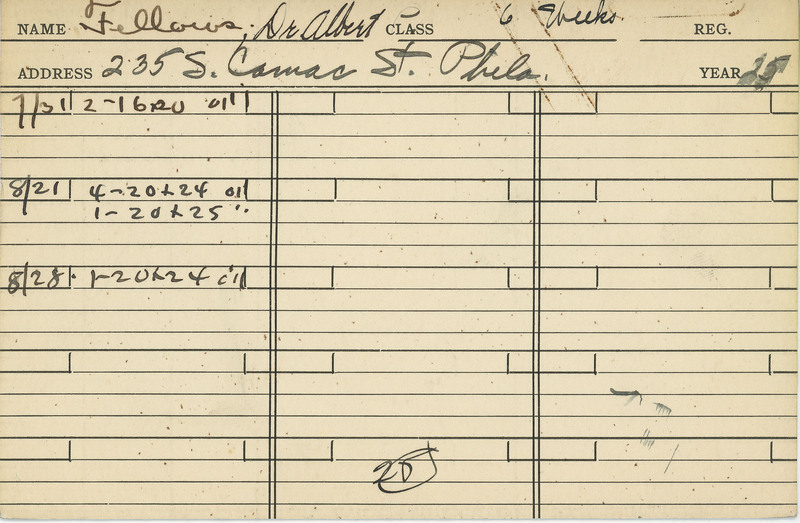 NAME Fellows, Dr Albert CLASS 6 Weeks REG.
ADDRESS 235 S. Camac St. Phila. YEAR 25
7/31 2-16x20 oil
8/21 4-20x24 oil
1-20x25 "
8/28. 1-20x24 oil
20